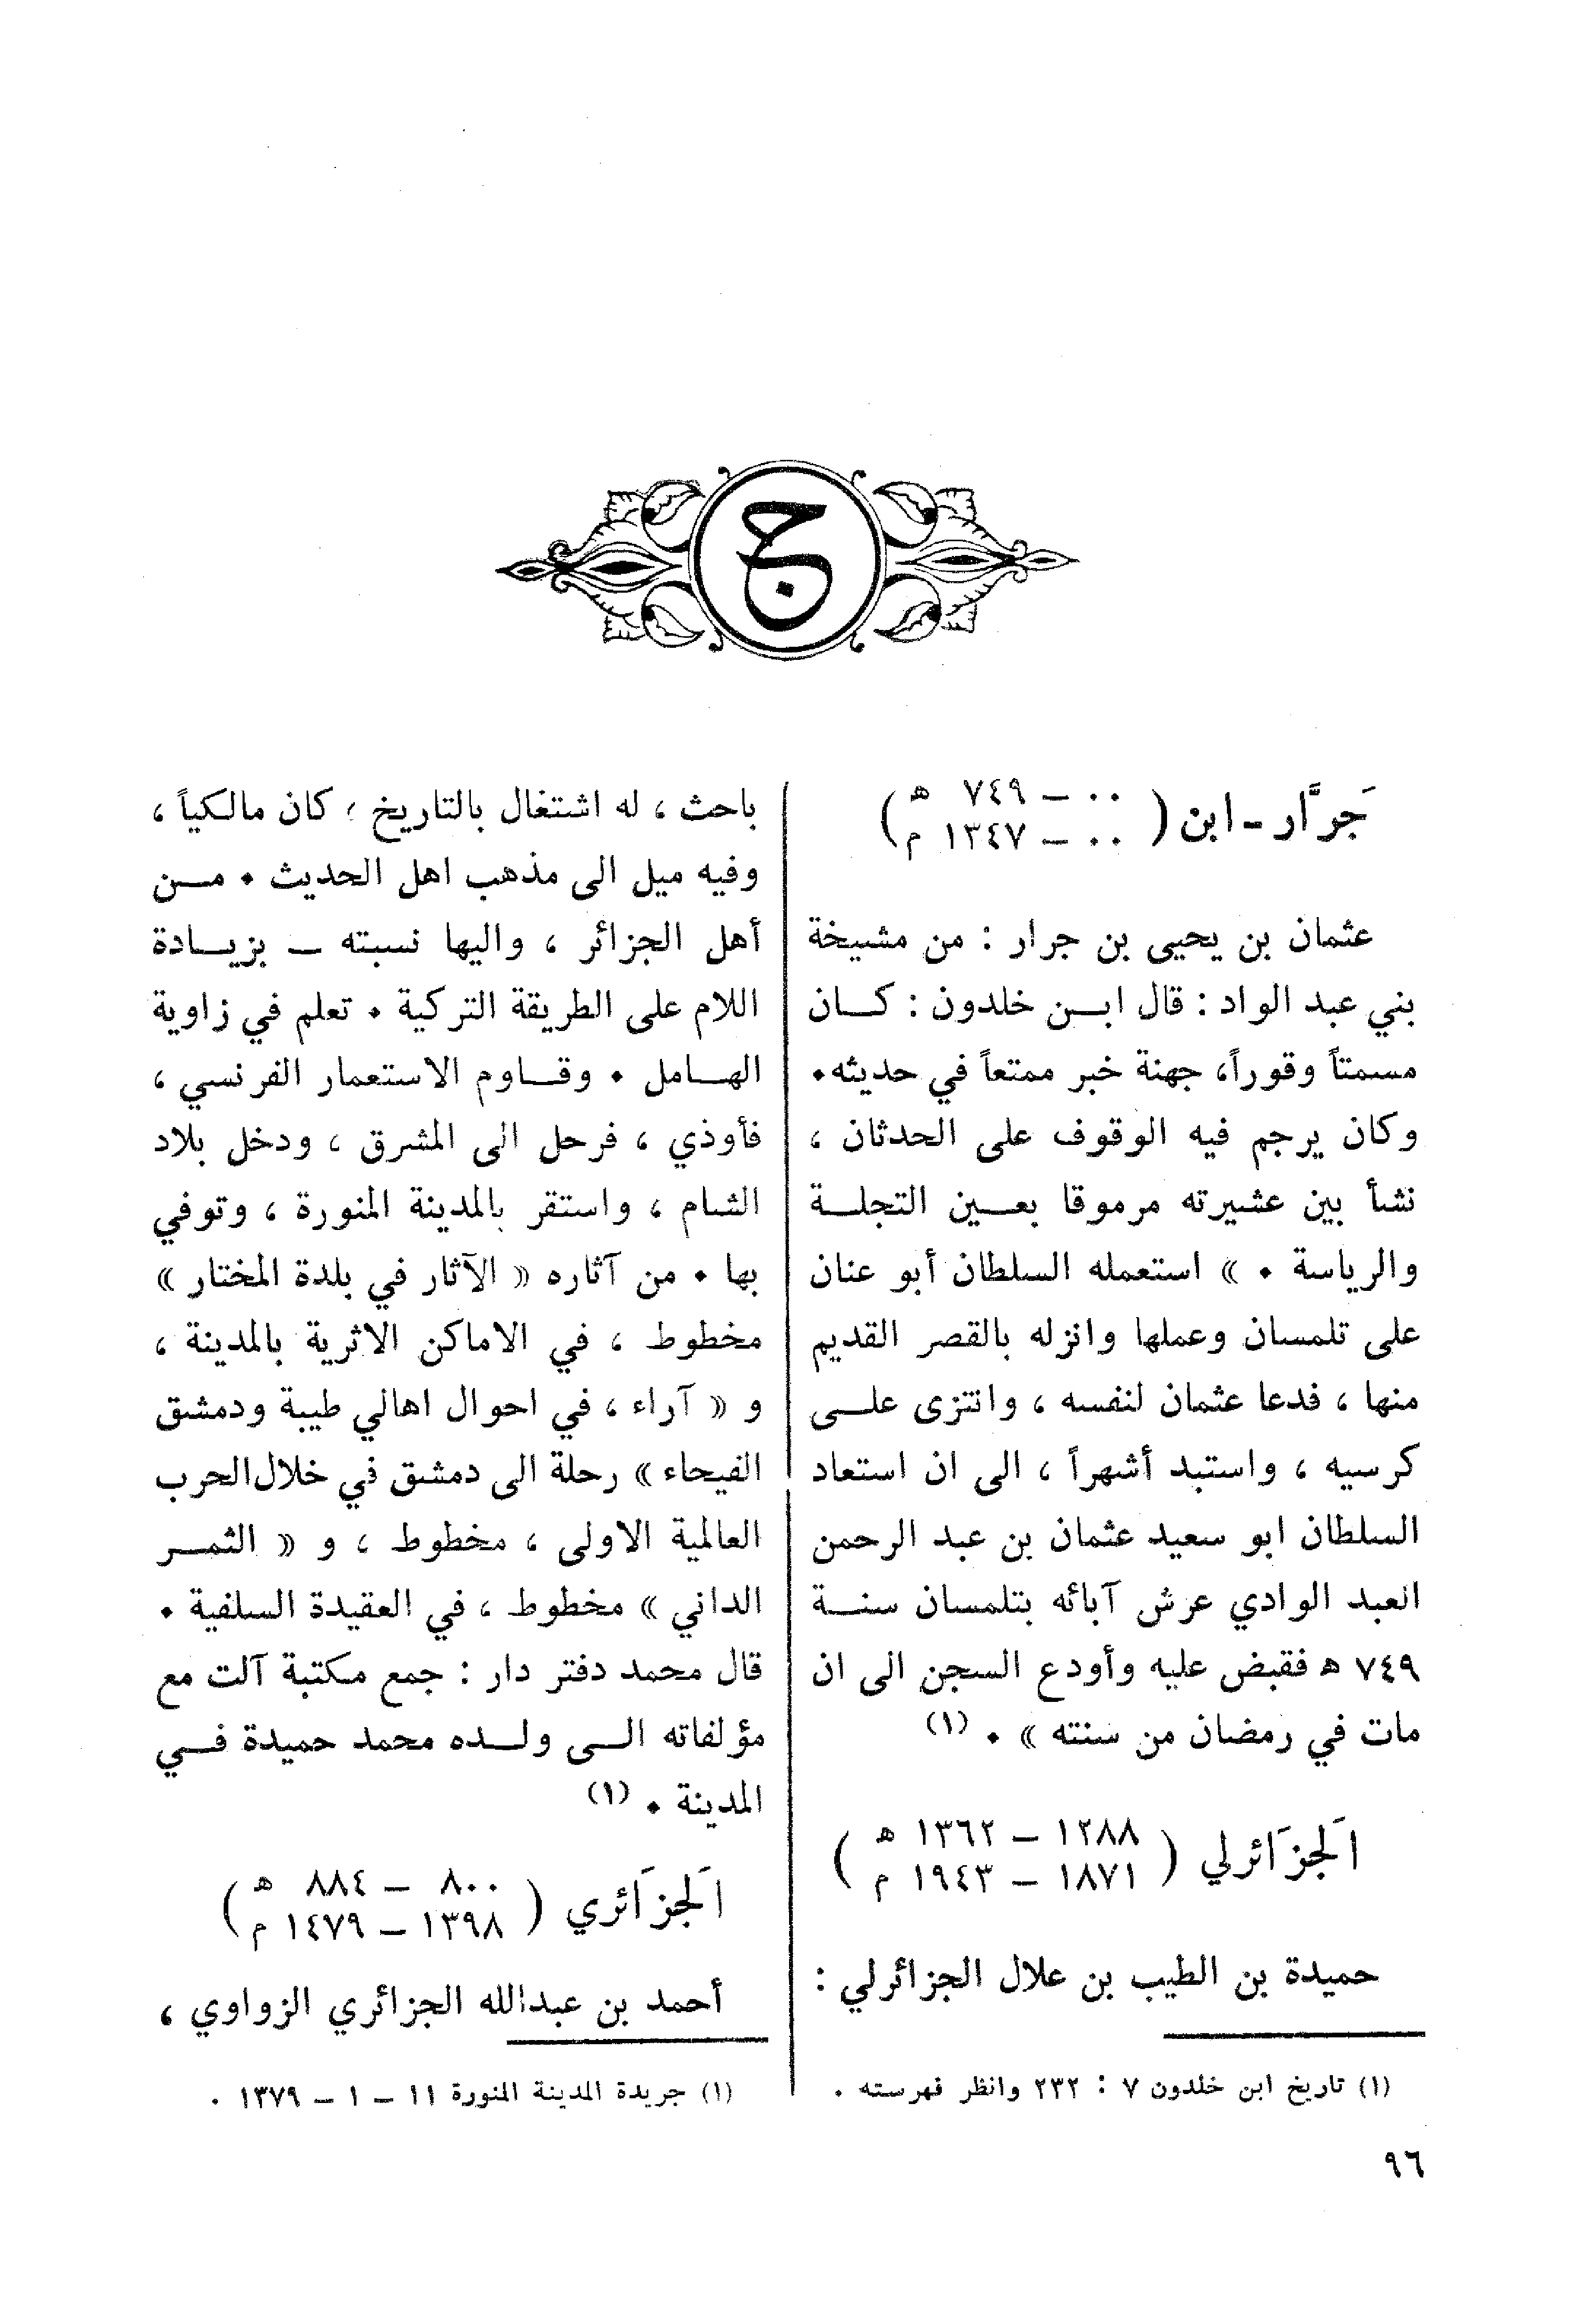 ج
جَرَّار - ابن ( ٠٠ – ٧٤٩ هـ
٠٠ – ١٣٤٧ م )
عثمان بن يحيى بن جرار : من مشيخة
بني عبد الواد : قال ابن خلدون : كان
مسمتاً وقوراً، جهنة خبر ممتعاً في حديثه٠
وكان يرجم فيه الوقوف على الحدثان ،
نشأ بين عشيرته مرموقا بعين التجلة
والرياسة ٠ » استعمله السلطان أبو عنان
على تلمسان وعملها وانزله بالقصر القديم
منها ، فدعا عثمان لنفسه ، وانتزى على
كرسيه ، واستبد أشهراً ، الى ان استعاد
السلطان ابو سعيد عثمان بن عبد الرحمن
العبد الوادي عرش آبائه بتلمسان سنة
٧٤٩ هـ فقبض عليه وأودع السجن الى ان
مات في رمضان من سنته » ٠ (١)
اَلجزَائرلي ( ١٢٨٨ – ١٣٦٢ هـ
١٨٧١ – ١٩٤٣ م )
حميدة بن الطيب بن علال الجزائرلي :
(١) تاريخ ابن خلدون ٧ : ٢٣٢ وانظر فهرسته .
باحث ، له اشتغال بالتاريخ ، كان مالكياً ،
وفيه ميل الى مذهب اهل الحديث ٠ من
أهل الجزائر ، واليها نسبته – بزيادة
اللام على الطريقة التركية ٠ تعلم في زاوية
الهامل ٠ وقاوم الاستعمار الفرنسي ،
فأوذي ، فرحل الى المشرق ، ودخل بلاد
الشام ، واستقر بالمدينة المنورة ، وتوفي
بها ٠ من آثاره « الآثار في بلدة المختار »
مخطوط ، في الاماكن الاثرية بالمدينة ،
و « آراء ، في احوال اهالي طيبة ودمشق
الفيحاء » رحلة الى دمشق في خلال الحرب
العالمية الاولى ، مخطوط ، و « الثمر
الداني » مخطوط ، في العقيدة السلفية ٠
قال محمد دفتر دار : جمع مكتبة آلت مع
مؤلفاته الى ولده محمد حميدة في
المدينة ٠ (١)
اَلجزَائري ( ٨٠٠ – ٨٨٤ هـ
١٣٩٨ – ١٤٧٩ م )
أحمد بن عبدالله الجزائري الزواوي ،
(١) جريدة المدينة المنورة ١١ – ١ – ١٣٧٩ .
٩٦